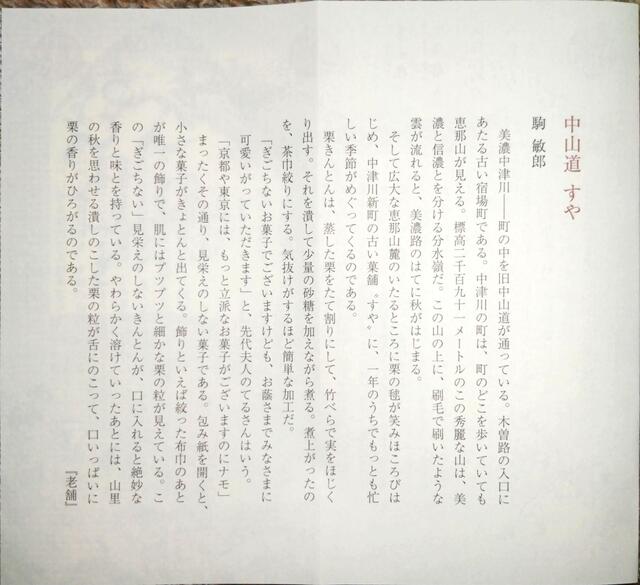 中山道 すや
駒 敏郎
美濃中津川――町の中を旧中山道が通っている。木曽路の入口に
あたる古い宿場町である。中津川の町は、町のどこを歩いていても
恵那山が見える。標高二千百九十一メートルのこの秀麗な山は、美
濃と信濃とを分ける分水嶺だ。この山の上に、刷毛で刷いたような
雲が流れると、美濃路のはてに秋がはじまる。
そして広大な恵那山麓のいたるところに栗の毬が笑みほころびは
じめ、中津川新町の古い菓舗〝すや〟に、一年のうちでもっとも忙
しい季節がめぐってくるのである。
栗きんとんは、蒸した栗をたて割りにして、竹べらで実をほじく
り出す。それを潰して少量の砂糖を加えながら煮る。煮上がったの
を、茶巾絞りにする。気抜けがするほど簡単な加工だ。
「ぎごちないお菓子でございますけども、お蔭さまでみなさまに
可愛いがっていただきます」と、先代夫人のてるさんはいう。
「京都や東京には、もっと立派なお菓子がございますのにナモ」
まったくその通り、見栄えのしない菓子である。包み紙を開くと、
小さな菓子がきょとんと出てくる。飾りといえば絞った布巾のあと
が唯一の飾りで、肌にはブツブツと細かな栗の粒が見えている。こ
の「ぎごちない」見栄えのしないきんとんが、口に入れると絶妙な
香りと味とを持っている。やわらかく溶けていったあとには、山里
の秋を思わせる潰しのこした栗の粒が舌にのこって、口いっぱいに
栗の香りがひろがるのである。
『老舗』